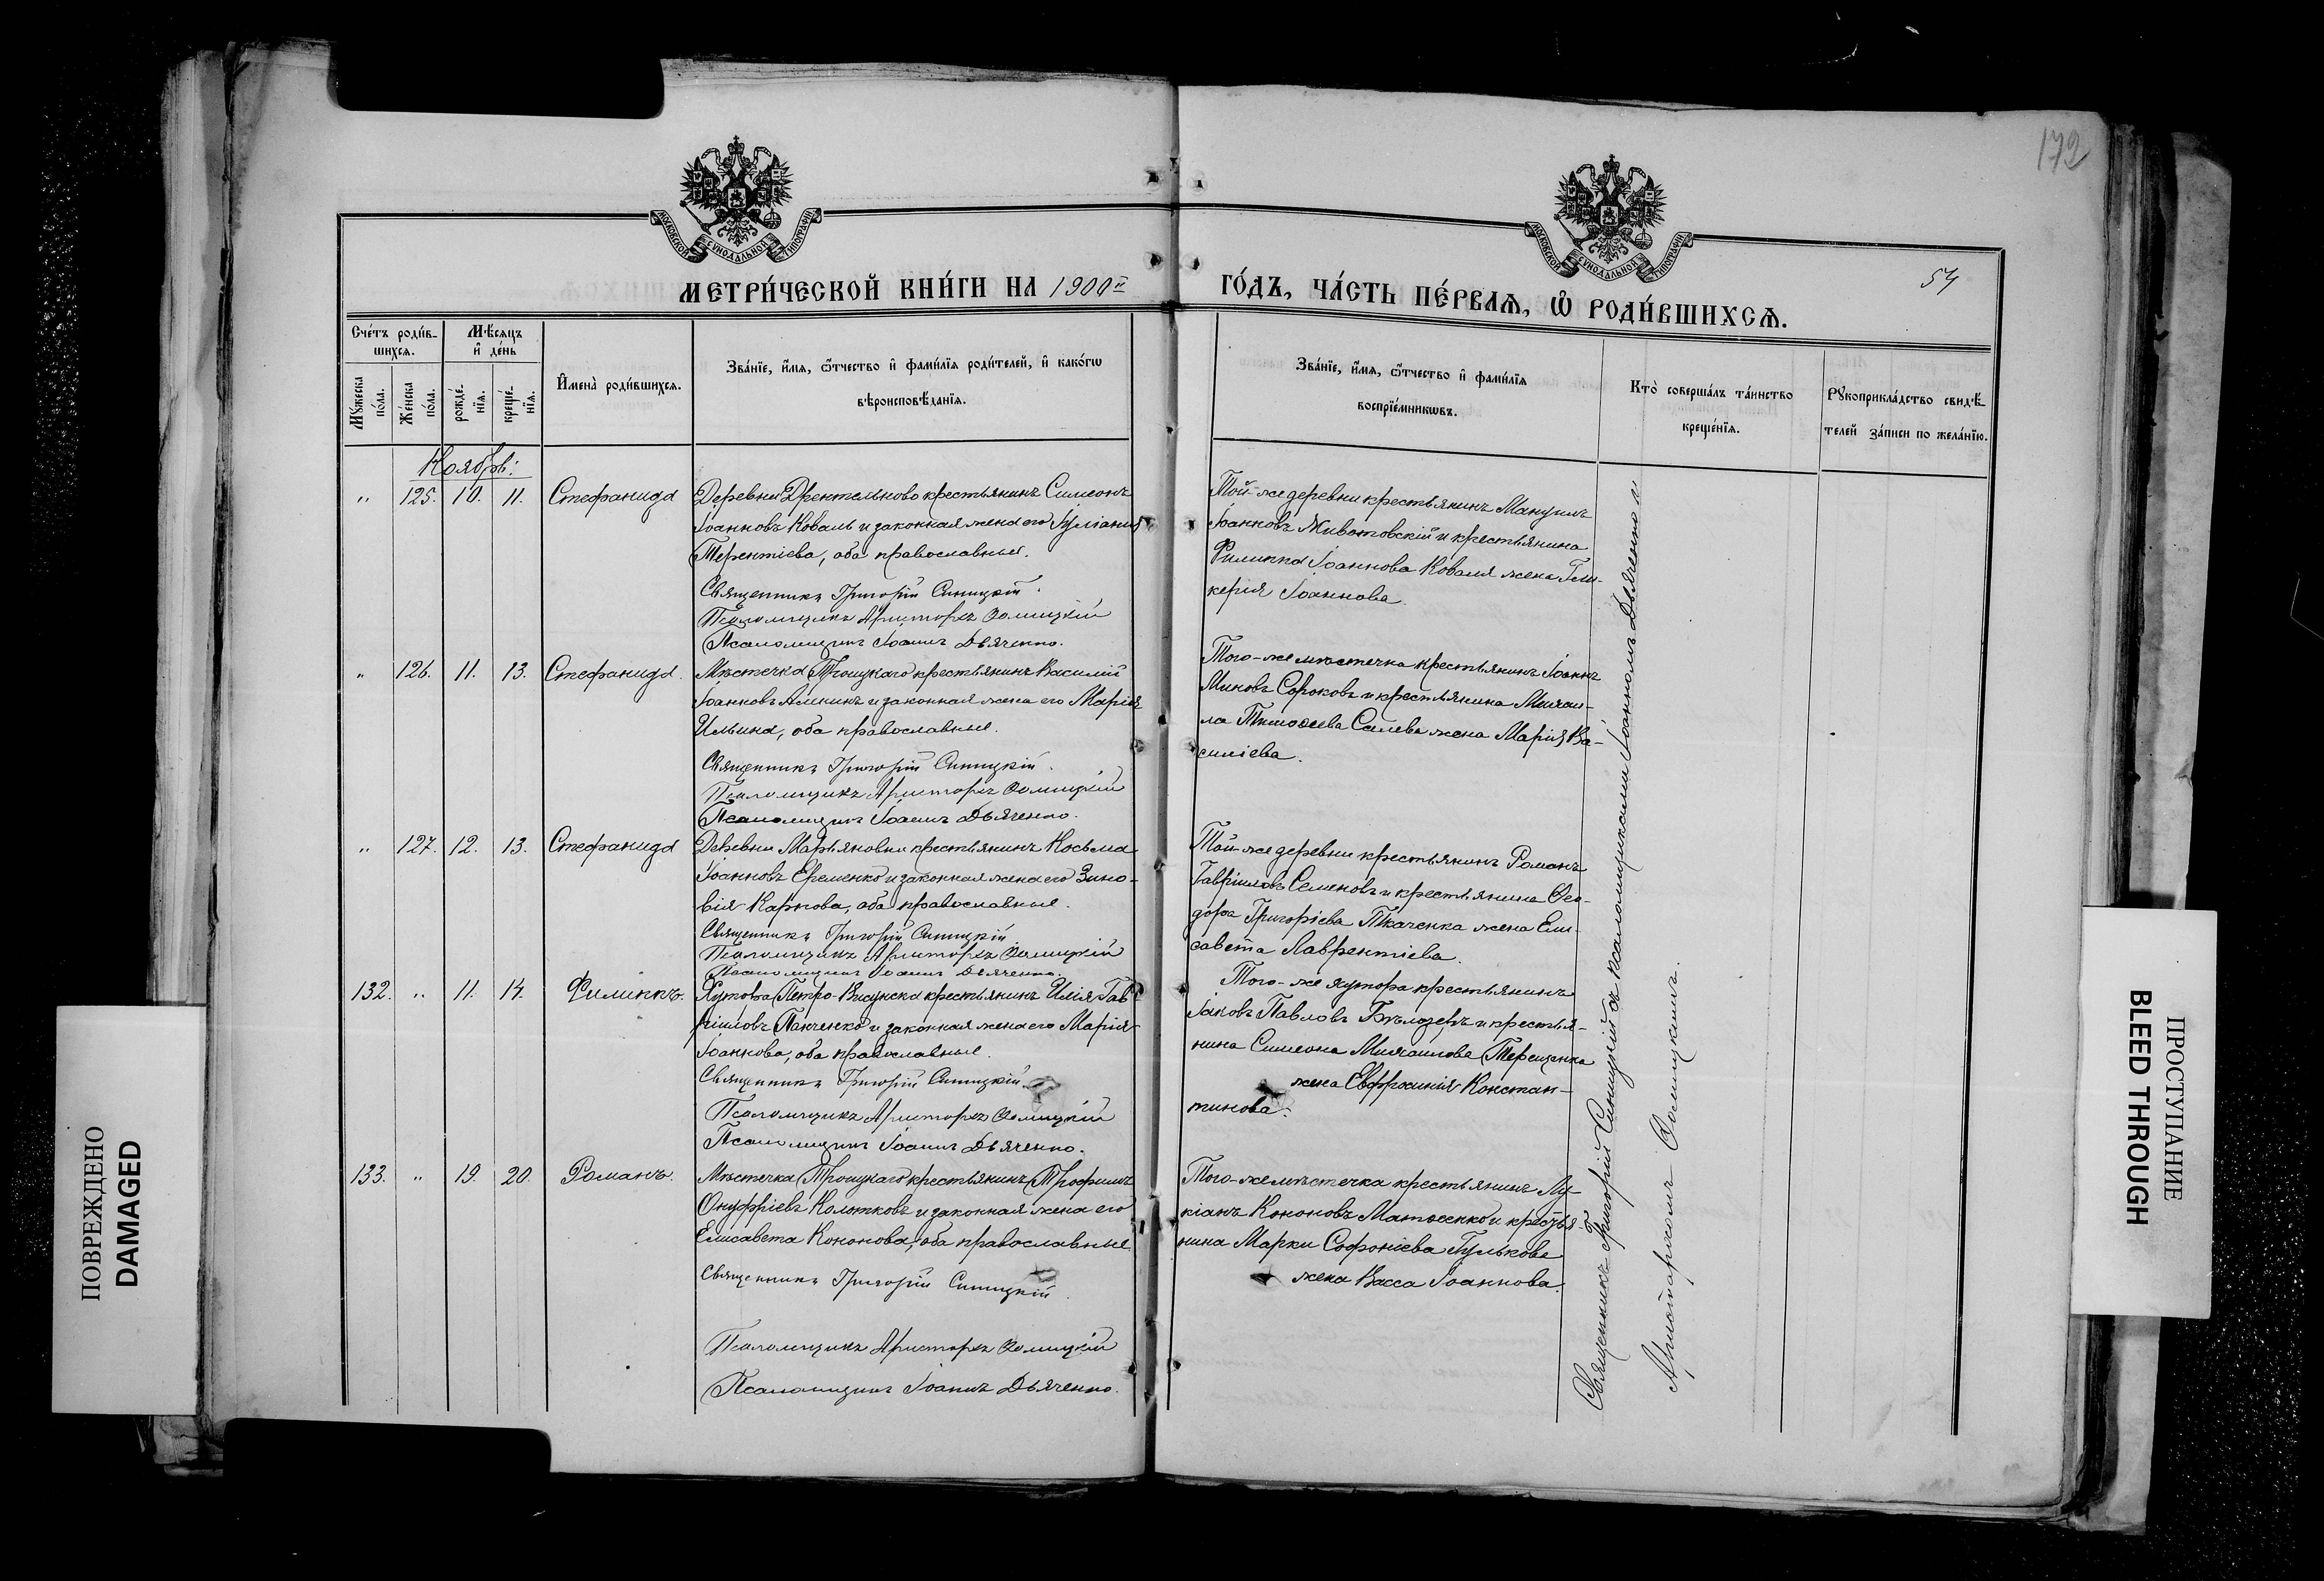 172
МОСКОВСКОЙ СУНОДАЛЬНОЙ ТИПОГРАФІИ
МОСКОВСКОЙ СУНОДАЛЬНОЙ ТИПОГРАФІИ
МЕТРИ́ЧЕСКОЙ КНИ́ГИ НА 1900й
ГО́ДЪ, ЧА́СТЬ ПЕ́РВАѦ, Ѡ҆ РОДИ́ВШИХСѦ.
54
Счéтъ роди́в-
шихсѧ.
Мѹ́жеска
по́ла.
Же́нска
по́ла.
Мѣ́сяцъ
и҆ де́нь
рожде́-
нїѧ.
креще́-
нїѧ.
И҆мена̀ роди́вшихсѧ.
Зва́нїе, и҆́мѧ, ѻ҆́тчество и҆ фами́лїѧ роди́телей, и҆ како́гѡ
вѣроисповѣ́данїѧ.
Зва́нїе, и҆́мѧ, ѻ҆́тчество и҆ фами́лїѧ
воспрїе́мникѡвъ.
Кто̀ соверша́лъ та́инство
креще́нїѧ.
Рꙋкоприкла́дство свидѣ́-
телей за́писи по жела́нїю.
Ноябрь:
" 125. 10. 11. Стефанида
Деревни Дрентельново крестьянинъ Симеонъ
Іоанновъ Коваль и законная жена его Іуліанія
Терентіева, оба православные.
Священникъ Григорій Синицкій.
Псаломщикъ Аристархъ
Псаломщикъ Іоаннъ Дьяченко.
Той-же деревни крестьянинъ Мануилъ
Іоанновъ Животовскій и крестьянина
Филиппа Іоаннова Коваля жена Гли-
керія Іоаннова.
" 126. 11. 13. Стефанида.
Мѣстечка Троицкаго крестьянинъ Василій
Іоанновъ Алекинъ и законная жена его Марія
Ильина, оба православные.
Священникъ Григорій Синицкій.
Псаломщикъ Аристархъ
Псаломщикъ Іоаннъ Дьяченко.
Того-же мѣстечка крестьянинъ Іоаннъ
Миновъ Сороковъ и крестьянина Михаи-
ла Тимоѳеева Салева жена Марія Ва-
силіева.
" 127. 12. 13. Стефанида
Деревни Марьяновки крестьянинъ Косьма
Іоанновъ Еременко и законная жена его Зино-
вія Карпова, оба православные.
Священникъ Григорій Синицкій
Псаломщикъ Аристархъ
Псаломщикъ Іоаннъ Дьяченко.
Той-же деревни крестьянинъ Романъ
Гавріиловъ Семеновъ и крестьянина Ѳео-
дора Григоріева Ткаченка жена Ели-
савета Лаврентіева.
132. " 11. 14. Филиппъ.
Хутора Петро-Висунска крестьянинъ Илія Гав-
ріиловъ Панченко и законная жена его Марія
Іоаннова, оба православные.
Священникъ Григорій Синицкій.
Псаломщикъ Аристархъ
Псаломщикъ Іоаннъ Дьяченко.
Того-же хутора крестьянинъ
Іаковъ Павловъ и крестья-
нина Симеона Михаилова Терещенка
жена Евфросинія Констан-
тинова.
133. " 19. 20. Романъ.
Мѣстечка Троицкаго крестьянинъ Трофимъ
Онуфріевъ Колотковъ и законная жена его
Елисавета Кононова, оба православные.
Священникъ Григорій Синицкій.
Псаломщикъ Аристархъ
Псаломщикъ Іоаннъ Дьяченко.
Того-же мѣстечка крестьянинъ Лу-
кіанъ Кононовъ Матвеенко и крестья-
нина Марка Софоніева Гулькова
жена Васса Іоаннова.
Священникъ Григорій Синицкій съ псаломщиками Іоанномъ Дьяченко и
Аристархомъ
ПОВРЕЖДЕНО
DAMAGED
ПРОСТУПАНИЕ
BLEED THROUGH